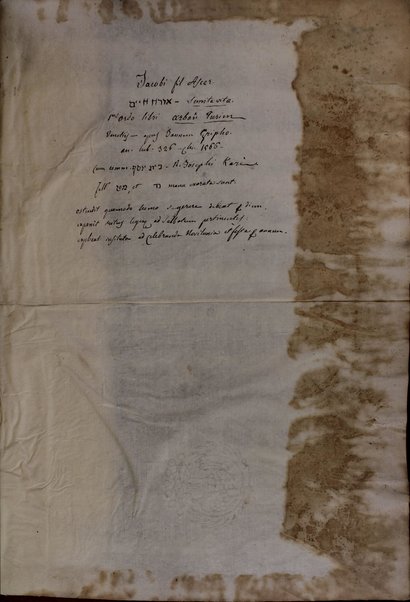 Jacobi fil Ascer
אורח חיים — Semita vita
1us ordo libri arbaà Turim
Venetiis — apud Joannem Gripho
an. iub. 326 — Chr. 1566
Cum comm. בית יוסף — R. Josephi Karò
fol. et manu exarata sunt.
ostendit quomodo homo se gerere debeat p diem
exponit ritus legesq ad sabbatum pertinentes
explicat instituta ad celebranda Novilunia et festa p annum.